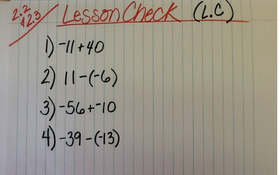 2.2
+2.3 Lesson Check (L.C)
1) -11+40
2) 11-(-6)
3) -56+-10
4) -39-(-13)